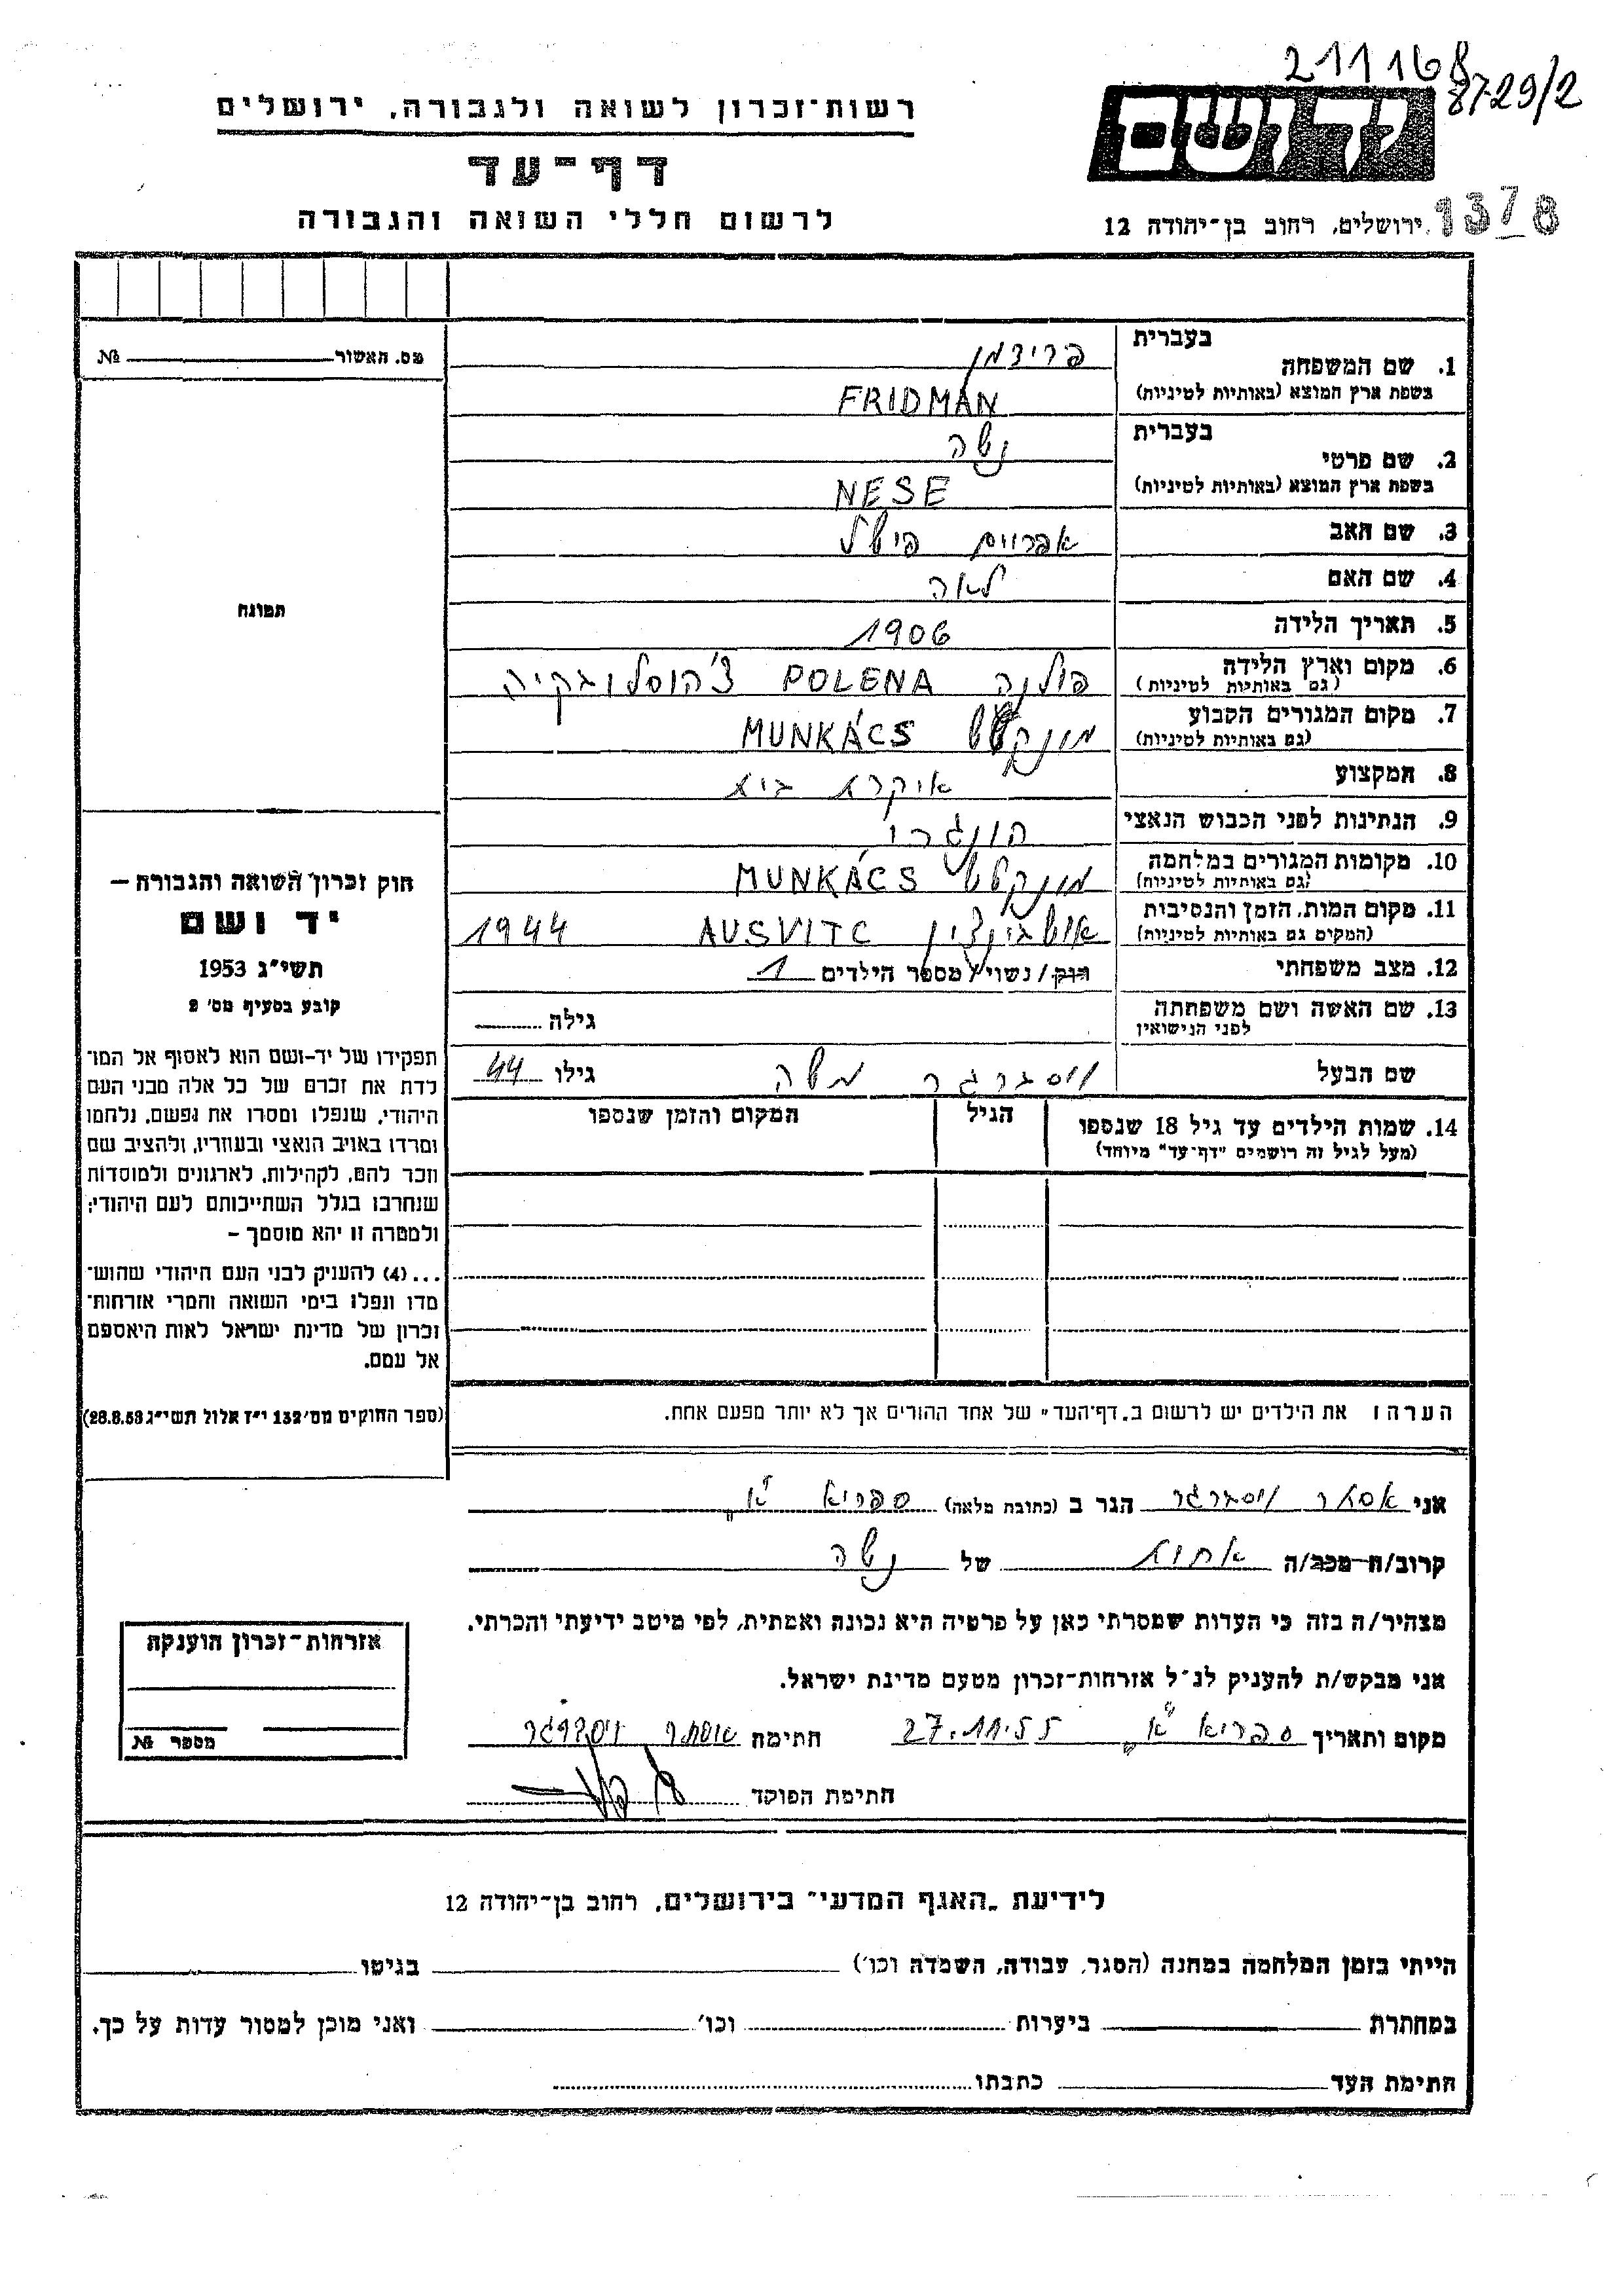 211168
8729/2
רשות־זכרון לשואה ולגבורה, ירושלים
ידושם
דף־עד
לרשום חללי השואה והגבורה
ירושלים, רחוב בן־יהודה 12
1378
מס. האשור № 
בעברית
1. שם המשפחה פרידמן
בשפת ארץ המוצא (באותיות לטיניות) FRIDMAN
בעברית
2. שם פרטי נשה
בשפת ארץ המוצא (באותיות לטיניות) NESE
3. שם האב אפרוים פישל
4. שם האם לאה
5. תאריך הלידה 1906
6. מקום וארץ הלידה פולנה POLENA צ'הוסלובקיה
(גם באותיות לטיניות)
7. מקום המגורים הקבוע MUNKÁCS
(גם באותיות לטיניות)
8. המקצוע אוקרת בית
9. הנתינות לפני הכבוש הנאצי הונגרו
10. מקומות המגורים במלחמה מונקטש MUNKÁCS
(גם באותיות לטיניות)
11. מקום המות, הזמן והנסיבות AUSVITC 1944
(המקום גם באותיות לטיניות)
12. מצב משפחתי רווק/נשוי/מספר הילדים 1
13. שם האשה ושם משפחתה גילה
לפני הנישואין
שם הבעל ויסברגר משה גילו 44
14. שמות הילדים עד גיל 18 שנספו הגיל המקום והזמן שנספו
(מעל לגיל זה רושמים "דף־עד" מיוחד)
הערה: את הילדים יש לרשום ב„דף־העד" של אחד ההורים אך לא יותר מפעם אחת.
תמונה
חוק זכרון השואה והגבורה –
יד ושם
תשי"ג 1953
קובע בסעיף מס' 2
תפקידו של יד-ושם הוא לאסוף אל המו־
לדת את זכרם של כל אלה מבני העם
היהודי, שנפלו ומסרו את נפשם, נלחמו
ומרדו באויב הנאצי ובעוזריו, ולהציב שם
וזכר להם, לקהילות, לארגונים ולמוסדות
שנחרבו בגלל השתייכותם לעם היהודי;
ולמטרה זו יהא מוסמך –
...(4) להעניק לבני העם היהודי שהוש־
מדו ונפלו בימי השואה והמרי אזרחות־
זכרון של מדינת ישראל לאות היאספם
אל עמם.
(ספר החוקים מס' 132 י"ז אלול תשי"ג 28.8.53)
אני אסתר ויסברגר הגר ב (כתובת מלאה) ספריא א'
קרוב/ה מכר/ה אחות של נשה
מצהיר/ה בזה כי העדות שמסרתי כאן על פרטיה היא נכונה ואמתית, לפי מיטב ידיעתי והכרתי.
אני מבקש/ת להעניק לנ"ל אזרחות־זכרון מטעם מדינת ישראל.
מקום ותאריך ספריא א' 27.11.55 חתימה אסתר ויסברגר
חתימת הפוקד
אזרחות־זכרון הוענקה
מספר №
לידיעת „האגף המדעי" בירושלים, רחוב בן־יהודה 12
הייתי בזמן המלחמה במחנה (הסגר, עבודה, השמדה וכו') בגיטו
במחתרת ביערות וכו' ואני מוכן למסור עדות על כך.
חתימת העד כתבתו